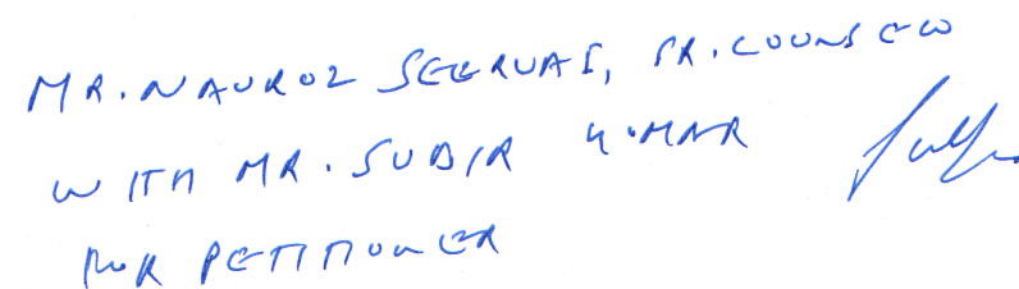 MR. NAUROZ SEERVAI, SR. COUNSEL
WITH MR. SUBIR KUMAR
FOR PETITIONER